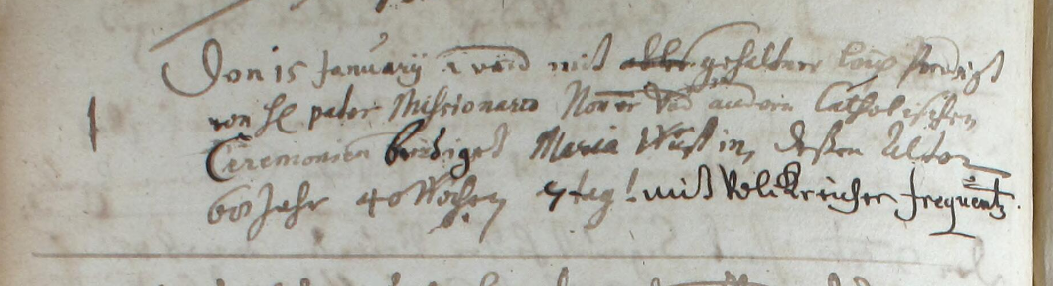 Den 15 January wird mit gehaltner leich Predigt
von H pater Missionario vnd andern Catholischen
Ceremonien bendiget Maria Wüstin, dessen Alter
60 Jahr 40 Wochen 7 tag! mit Volckreicher frequentz.